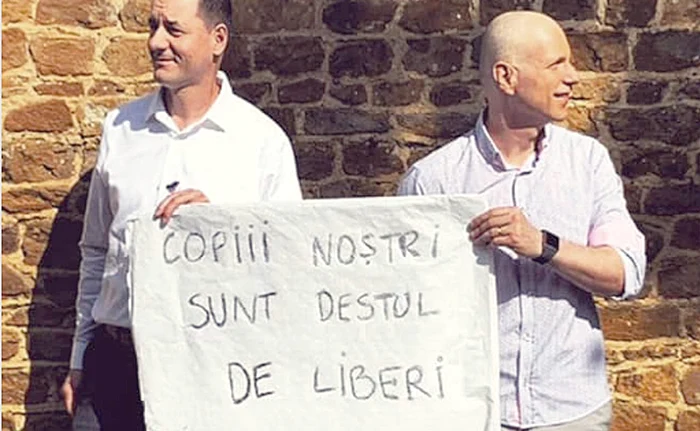 COPIII NOȘTRI
SUNT DESTUL
DE LIBERI